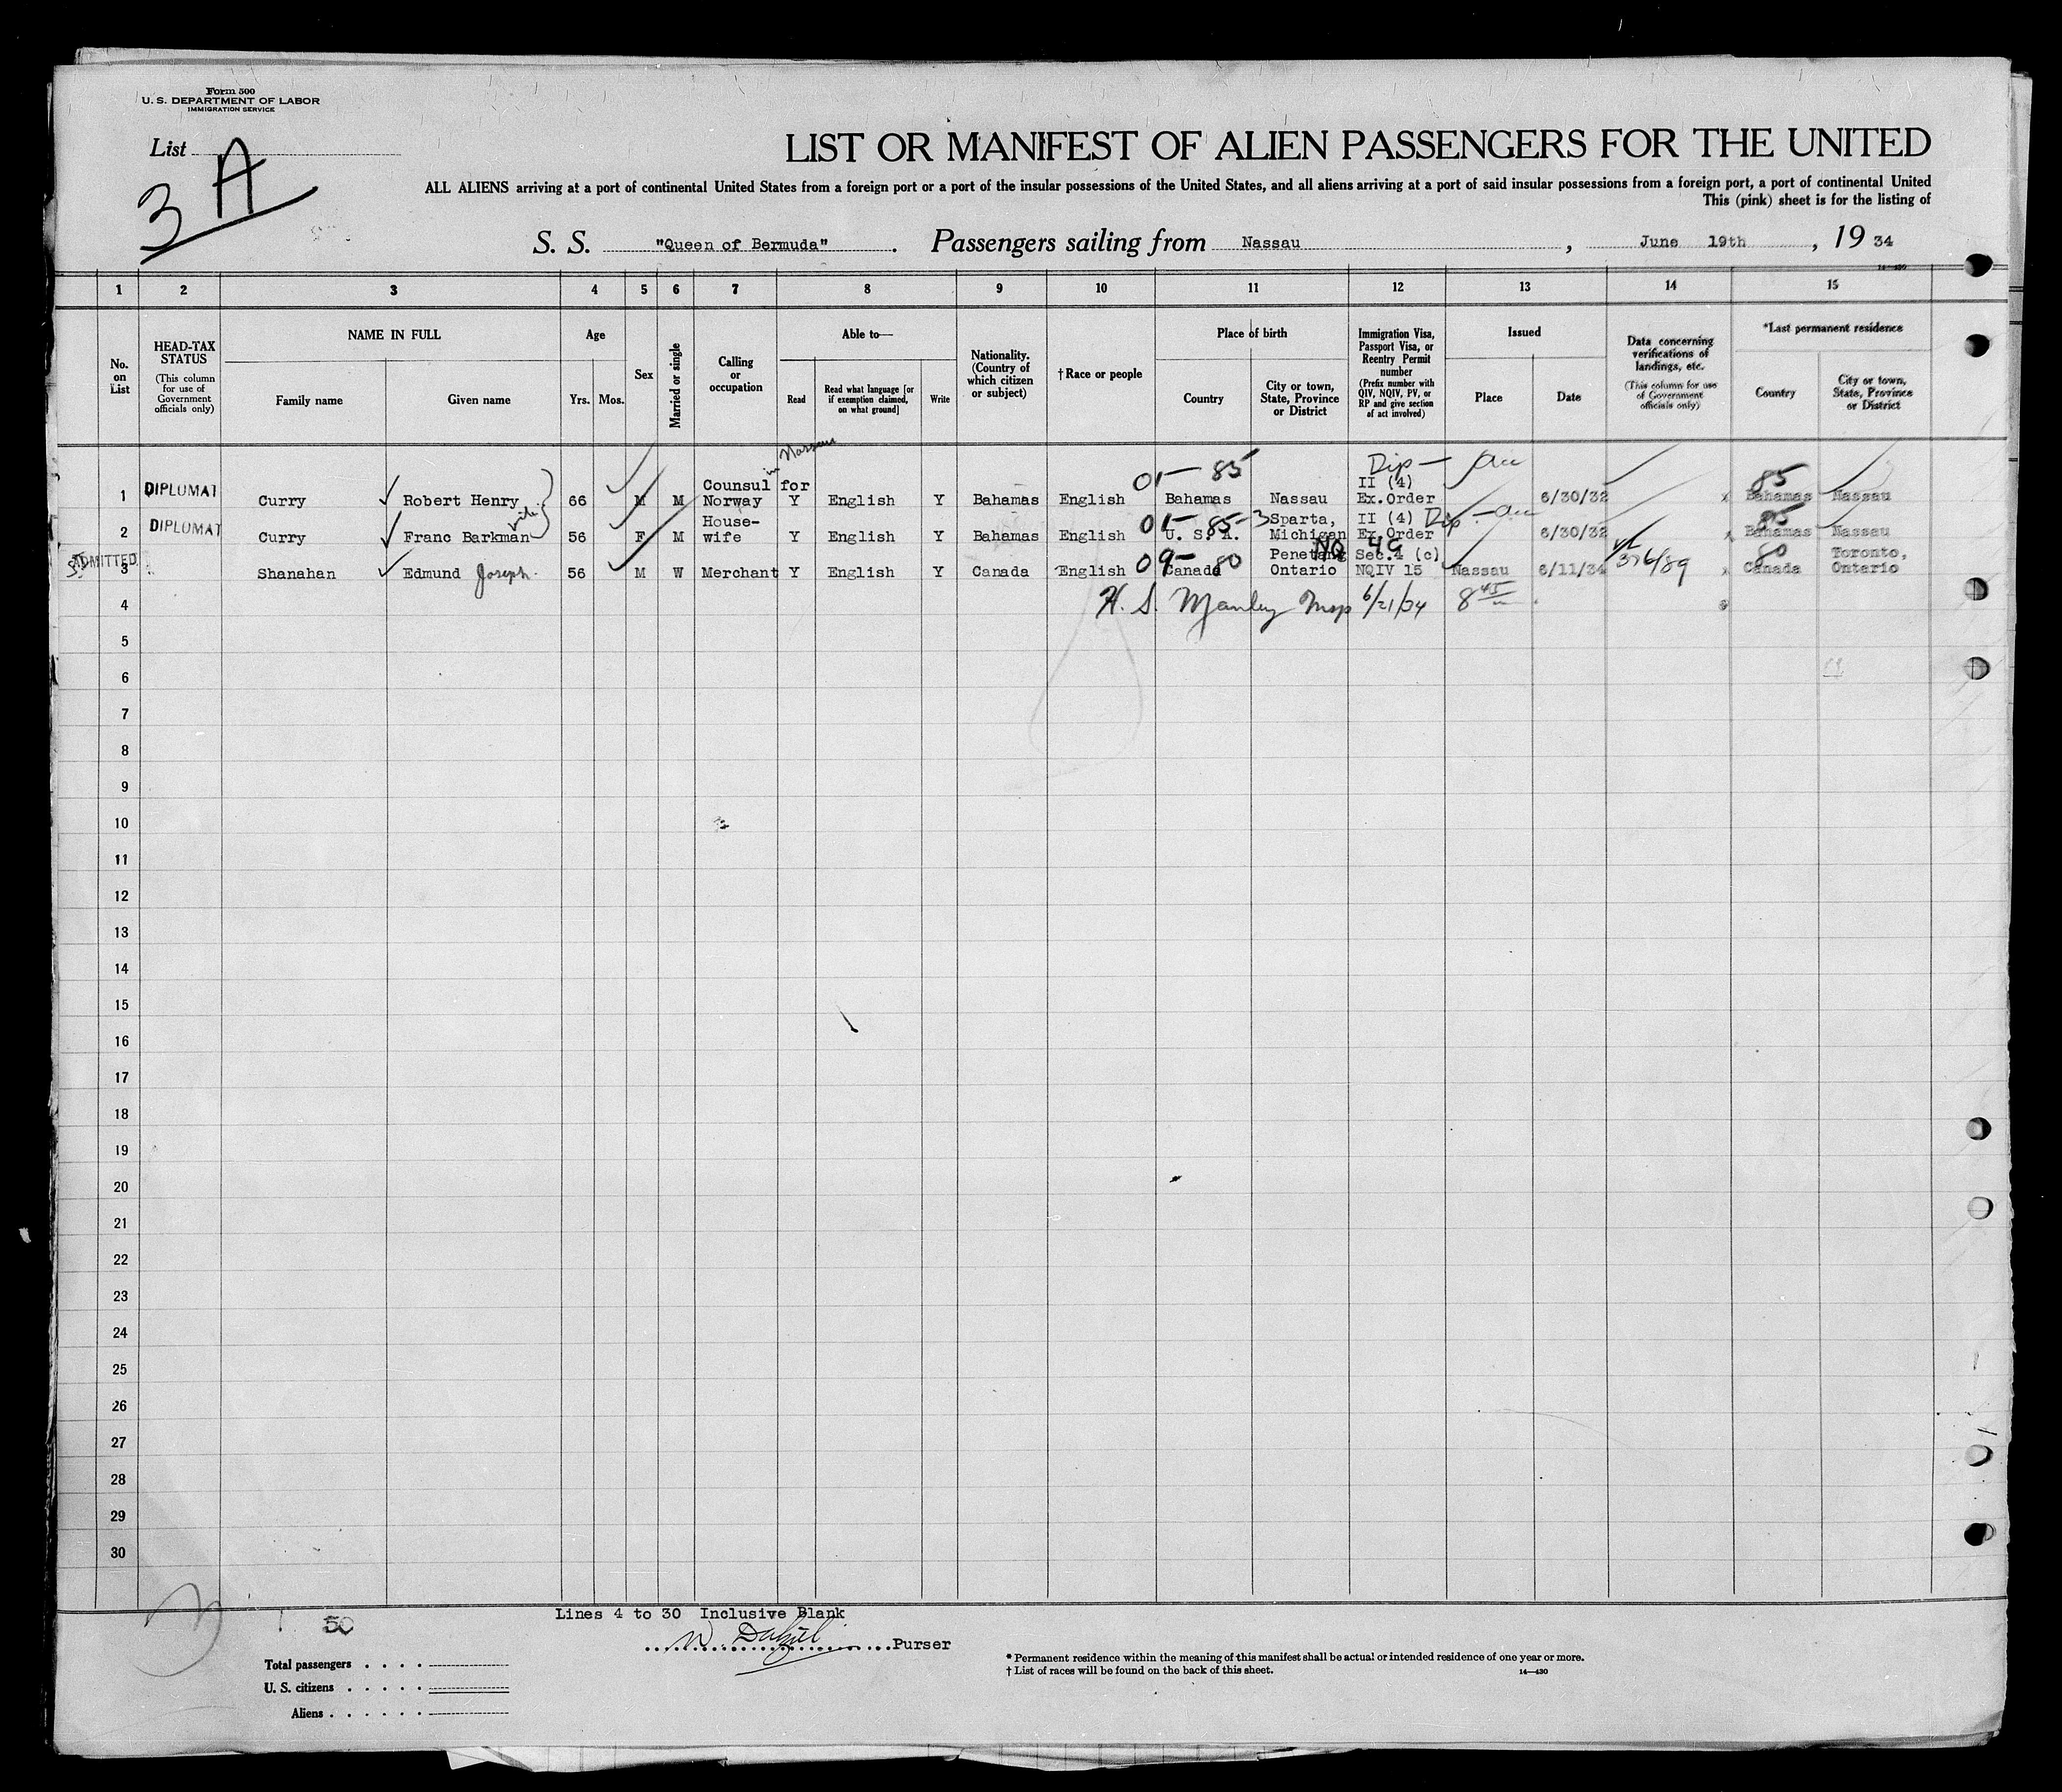 Form 500
U. S. DEPARTMENT OF LABOR
IMMIGRATION SERVICE
List
3 A
LIST OR MANIFEST OF ALIEN PASSENGERS FOR THE UNITED
ALL ALIENS arriving at a port of continental United States from a foreign port or a port of the insular possessions of the United States, and all aliens arriving at a port of said insular possessions from a foreign port, a port of continental United
This (pink) sheet is for the listing of
S. S. "Queen of Bermuda". Passengers sailing from Nassau, June 19th, 19 34
14—430
1 2 3 4 5 6 7 8 9 10 11 12 13 14 15
No. on List
HEAD-TAX STATUS
(This column for use of Government officials only)
NAME IN FULL
Family name Given name
Age
Yrs. Mos.
Sex
Married or single
Calling or occupation
Able to—
Read
Read what language [or if exemption claimed, on what ground]
Write
Nationality. (Country of which citizen or subject)
†Race or people
Place of birth
Country
City or town, State, Province or District
Immigration Visa, Passport Visa, or Reentry Permit number
(Prefix number with QIV, NQIV, PV, or RP and give section of act involved)
Issued
Place Date
Data concerning verifications of landings, etc.
(This column for use of Government officials only)
*Last permanent residence
Country
City or town, State, Province or District
in Nassau
01— 85 Dip— 85
1 DIPLOMAT Curry Robert Henry 66 M M Counsul for Norway Y English Y Bahamas English Bahamas Nassau II (4) Ex.Order 6/30/32 x Bahamas Nassau
wife
01— 85-3 Dip 85
2 DIPLOMAT Curry Franc Barkman 56 F M House-wife Y English Y Bahamas English U. S. A. Sparta, Michigan II (4) Ex.Order 6/30/32 x Bahamas Nassau
09— 80 NQ 4c 80
3 ADMITTED Shanahan Edmund Joseph. 56 M W Merchant Y English Y Canada English Canada Penetang Ontario Sec.4 (c) NQIV 15 Nassau 6/11/34 376/89 x Canada Toronto, Ontario
4 H. S. Manley Insp 6/21/34 8 45
5
6
7
8
9
10
11
12
13
14
15
16
17
18
19
20
21
22
23
24
25
26
27
28
29
30
50
Lines 4 to 30 Inclusive Blank
Purser
Total passengers
U. S. citizens
Aliens
* Permanent residence within the meaning of this manifest shall be actual or intended residence of one year or more.
† List of races will be found on the back of this sheet.
14—430